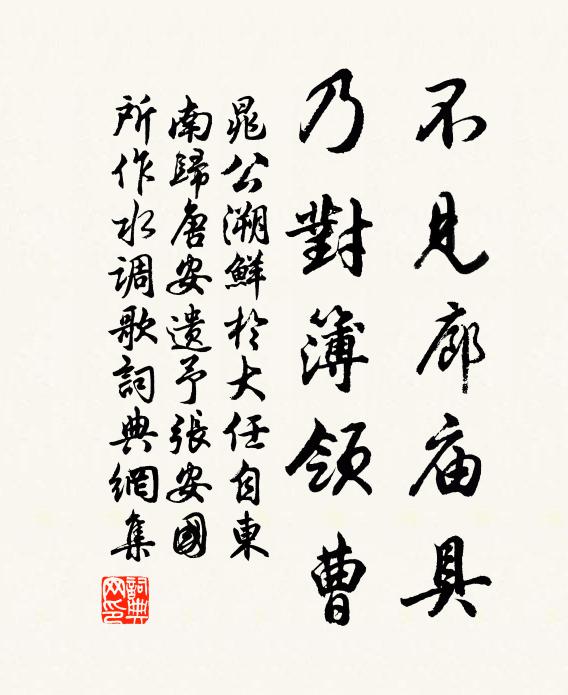 不見廊庙具
乃對簿領曹
晁公溯鮮於大任自東
南歸唐安遗予張安國
所作水调歌詞典網集
詞典网印